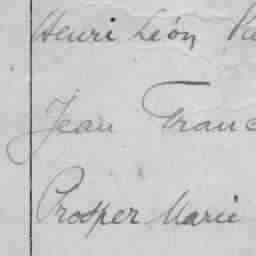 Henri Léon
Jean Franc
Prosper Marie